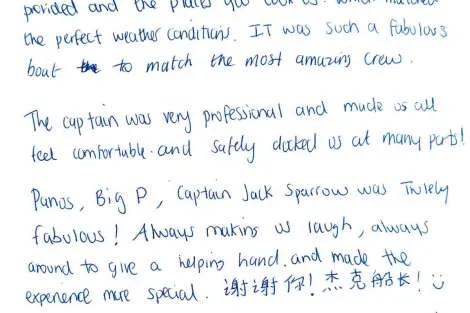 provided and the places you took us. which matched
the perfect weather conditions. IT was such a fabulous
boat to match the most amazing crew.
The captain was very professional and made us all
feel comfortable. and safely docked us at many ports!
Panos, Big P, Captain Jack Sparrow was Truely
fabulous! Always making us laugh, always
around to give a helping hand. and made the
experience more special. 谢谢你! 杰克船长! ☺